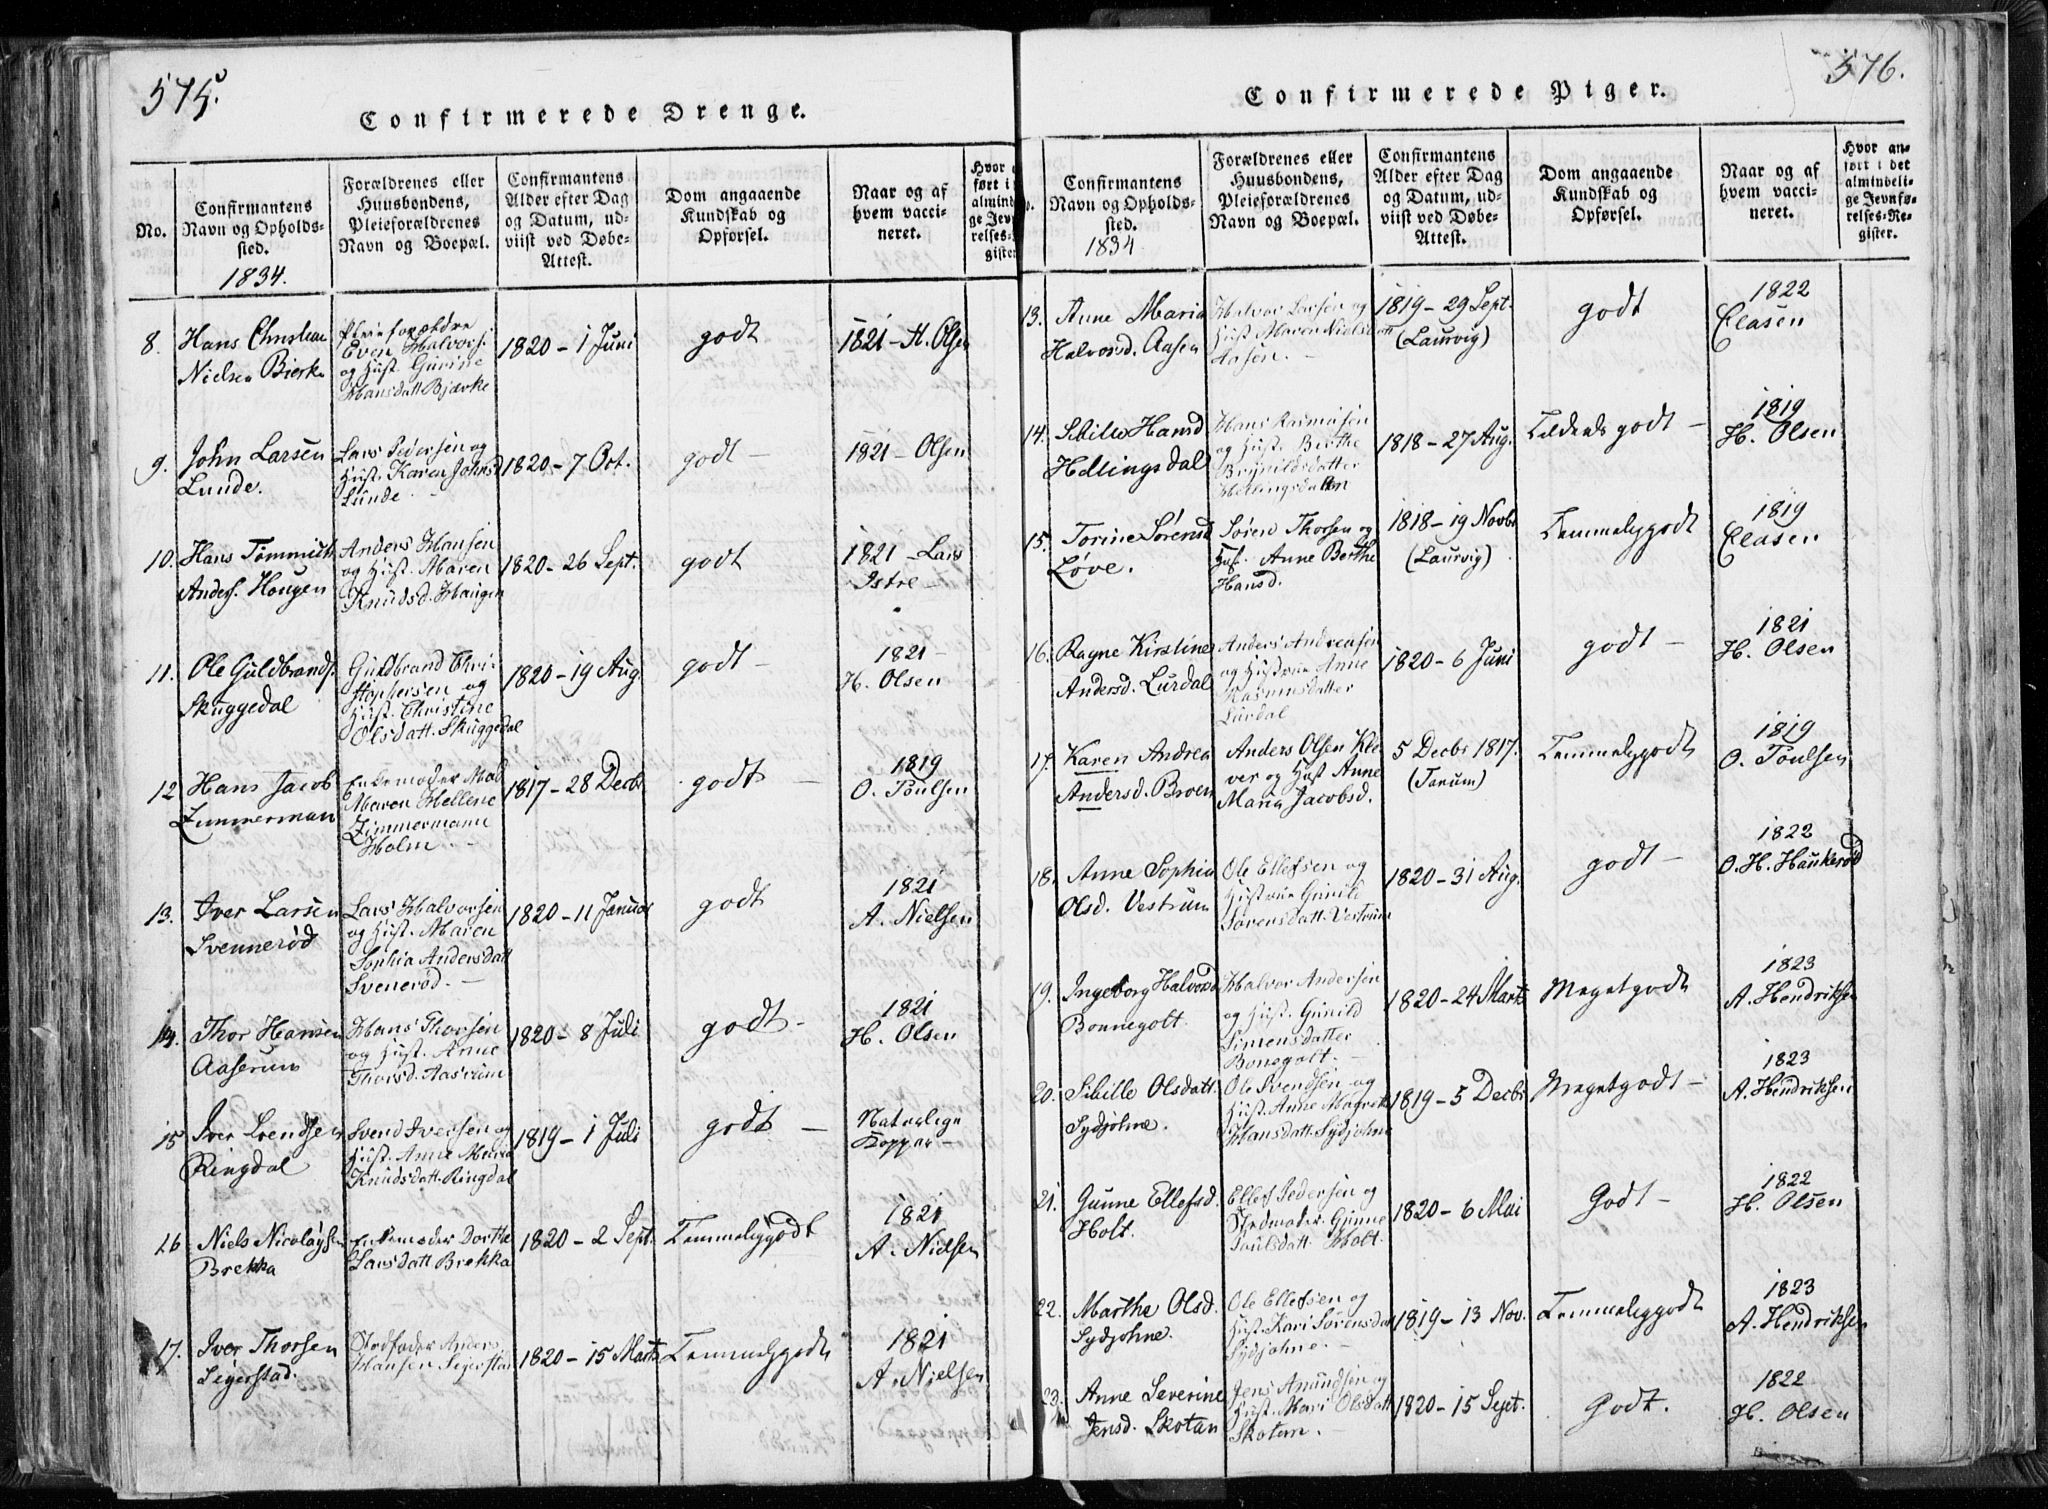 575.
Confirmerede Drenge.
No.
Confirmantens
Navn og Opholds-
sted.
1834.
Forældrenes eller
Huusbondens,
Pleieforældrenes
Navn og Boepæl.
Confirmantens
Alder efter Dag
og Datum, ud-
viist ved Døbe-
Attest.
Dom angaaende
Kundskab og
Opførsel.
Naar og af
hvem vacci-
neret.
8.
Hans Christian
Nielsen Bierke
Pleieforældre
Even Halvors:
og Hust. Gurine
Hansdatt Bjærke
1820 - 1 Juni
godt
1821 - H. Olsen
9.
John Larsen
Lunde.
Lars Pedersen og
Hust. Karen Johnsd
Lunde
1820 - 7 Oct.
godt -
1821 - Olsen
10.
Hans
Anders. Hougen
Anders Hansen
og Hust. Maren
Knudsd. Haugen
1820 - 26 Sept.
godt
1821 - Lars
Istre -
11.
Ole Guldbrands.
Skuggedal
Guldbrand Chri-
stophersen og
Hust. Christine
Olsdatt. Skuggedal
1820 - 19 Aug
godt -
1821 -
H. Olsen
12
Hans Jacob
Zimmerman
Enkemoder Mad
Maren Hellene
Zimmermann
Holm. -
1817 - 28 Decbr
godt -
1819
O. Poulsen
13.
Iver Larsen
Svennerød
Lars Halvorsen
og Hust. Maren
Sophia Andersdatt
Svenerød. -
1820 - 11 Januar
godt
1821
A. Nielsen
14.
Thor Hansen
Aaserum
Hans Thorsen
og Hust. Anne
Thorsd. Aasrum
1820 - 8 Juli
godt -
1821
H. Olsen
15
Iver Svendsen
Ringdal
Svend Iversen og
Hust. Anne Maria
Knudsdatt. Ringdal
1819 - 1 Juli
godt -
Naturlige
Kopper -
16
Niels Nicolaysen
Brekka
Enkemoder Dorthe
Larsdatt Brekka
1820 - 2 Sept.
Temmeliggodt
1821
A. Nielsen
17.
Iver Thorsen
Seierstad.
Stedfader Anders
Hansen Seierstad
1820 - 15 Marts
Temmeliggodt
1821
A. Nielsen
576.
Confirmerede Piger.
Confirmantens
Navn og Opholds-
sted.
1834
Forældrenes eller
Huusbondens,
Pleieforældrenes
Navn og Boepæl.
Confirmantens
Alder efter Dag
og Datum, ud-
viist ved Døbe-
Attest.
Dom angaaende
Kundskab og
Opførsel.
Naar og af
hvem vacci-
neret.
Hvor an-
ført i det
almindeli-
ge Jevnfø-
relses-Re-
gister.
13.
Anne Maria
Halvorsd. Aasen
Halvor Larsen og
Hust Maren Nielsdatt
Aasen. -
1819 - 29 Sept.
(Laurvig)
godt
1822
Clasen
14.
Sibille Hansd
Hellingsdal
Hans Rasmusen
og Hust. Berthe
Brynildsdatter
1818 - 27 Aug.
godt -
1819
H. Olsen
15.
Torine Sørensd
Løve.
Søren Thorsen og
Hust. Anne Berthe
Hansd.
1818 - 19 Novbr
(Laurvig)
Temmeliggodt
1819
Clasen
16.
Ragne Kirstine
Andersd. Lurdal
Anders Andreasen
og Hustrue Anne
Rasmusdatter
Lurdal
1820 - 6 Juni
godt -
1821
H. Olsen
17.
Karen Andrea
Andersd. Broen
Anders Olsen Kle
ver og Hust Anne
Maria Jacobsd.
5 Decbr 1817.
(Tanum)
Temmeliggodt
1819
O. Poulsen
18.
Anne Sophia
Olsd. Vestrum
Ole Ellefsen og
Hustrue Gunild
Sørensdatt. Vestrum
1820 - 31 Aug.
godt -
1822
O. H. Haukerød
19.
Ingeborg Halvorsd
Bonnegolt.
Halvor Andersen
og Hust. Gunild
Simensdatter
Bonegolt. -
1820 - 24 Marts
Megetgodt
1823
A. Hendriksen
20.
Sibille Olsdatt.
Sydjohne.
Ole Svendsen og
Hust. Anne Magrete
Hansdatt. Sydjohne
1819 - 5 Decbr
Megetgodt -
1823
A. Hendriksen
21.
Gunne Ellefsd.
Holt.
Ellef Pedersen og
Stedmoder Gunne
Poulsdatt. Holt.
1820 - 6 Mai
Godt -
1822
H. Olsen
22.
Marthe Olsd.
Sydjohne.
Ole Ellefsen og
Hust. Kari Sørensdatt
Sydjohne. -
1819 - 13 Nov.
Temmeliggodt
1823
A. Hendriksen
23.
Anne Severine
Jensd. Skotan
Jens Amundsen og
Hust. Mari Olsdatt
Skotan. -
1820 - 15 Sept.
Godt.
1822
H. Olsen